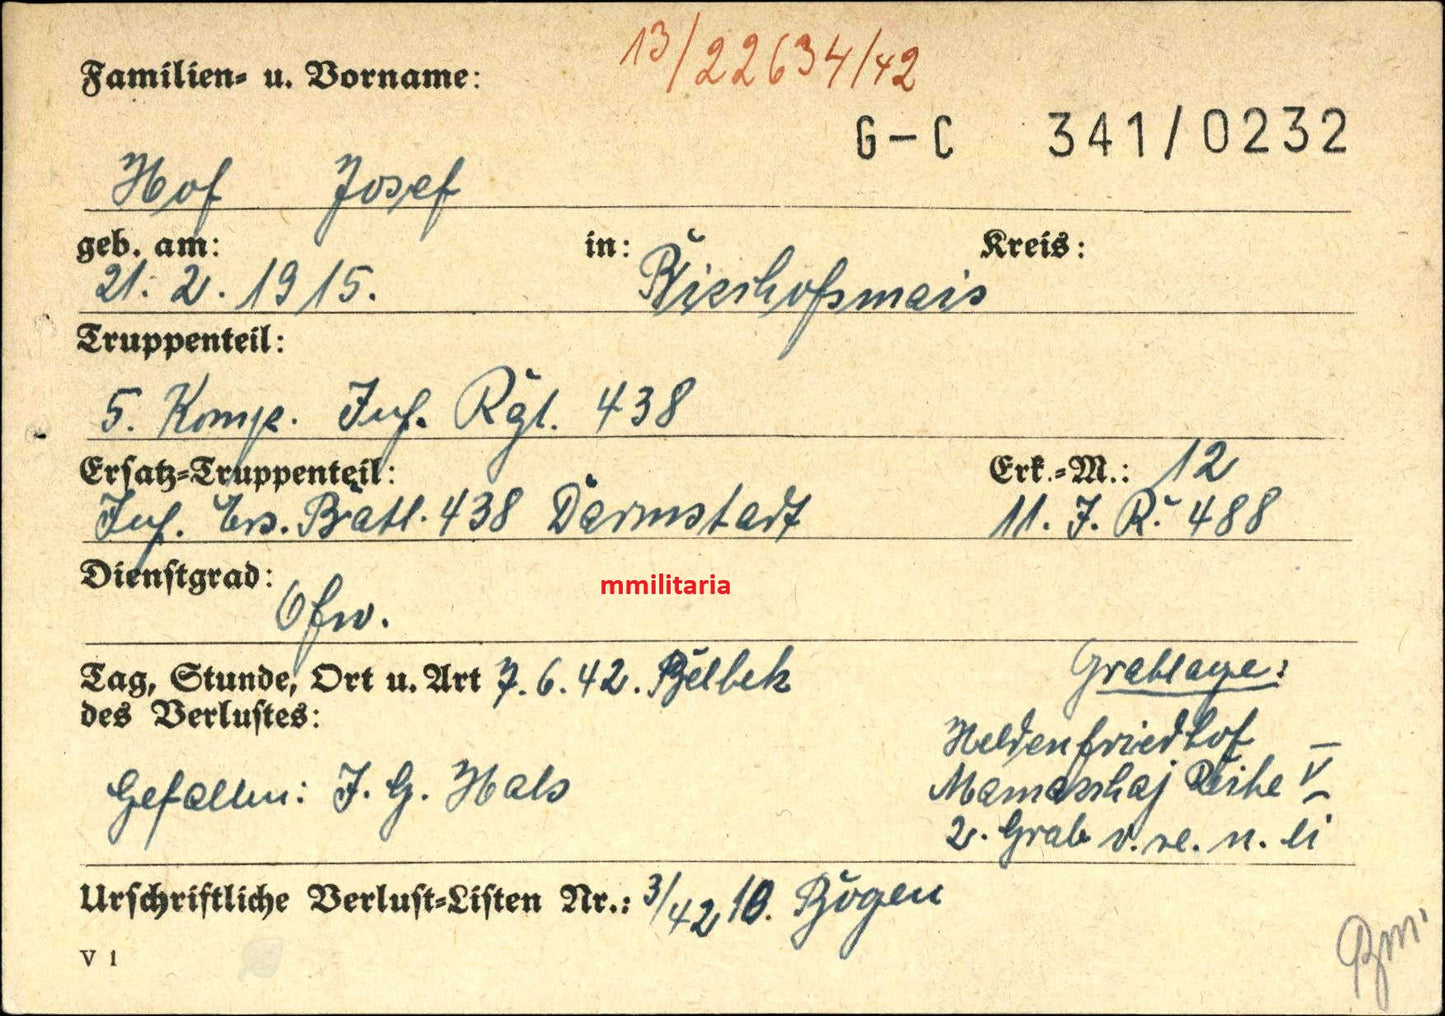 13/22634/42
Familien- u. Vorname:
G-C 341/0232
Hof Josef
geb. am: in: Kreis:
21. 2. 1915. Bischofsmais
Truppenteil:
5. Komp. Inf. Rgt. 438
Ersatz-Truppenteil: Erk.-M.: 12
Inf. Ers. Batl. 438 Darmstadt 11. I. R. 488
Dienstgrad:
Ofw.
mmilitaria
Tag, Stunde, Ort u. Art 7. 6. 42. Belbek
des Verlustes:
Grablage:
Heldenfriedhof
Gefallen: I. G. Hals
Mamaschaj Reihe V
2. Grab v. re. n. li
Urschriftliche Verlust-Listen Nr.: 3/42 10. Bogen
V 1